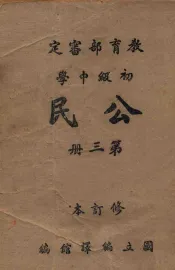 教育部審定
初級中學
公民
第三冊
修訂本
國立編譯館編